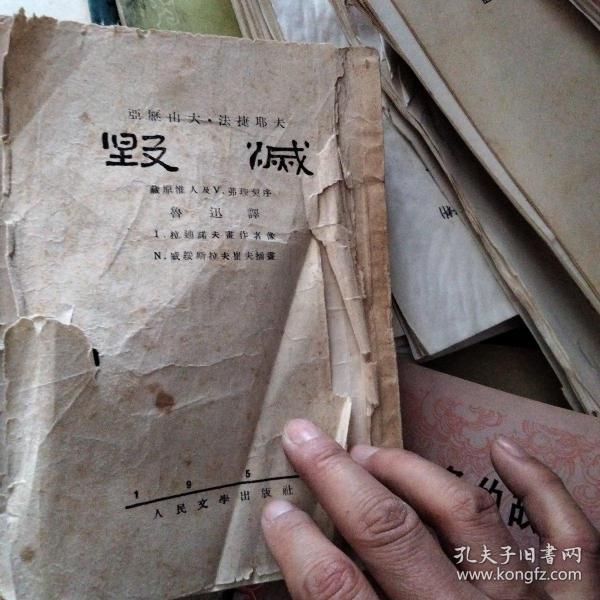 亞歷山大·法捷耶夫
毀滅
藏原惟人及V.弗理契序
魯迅譯
I.拉迪諾夫畫作者像
N.威綏斯拉夫崔夫插畫
195
人民文學出版社
的故
孔夫子旧書网
www.kongfz.com